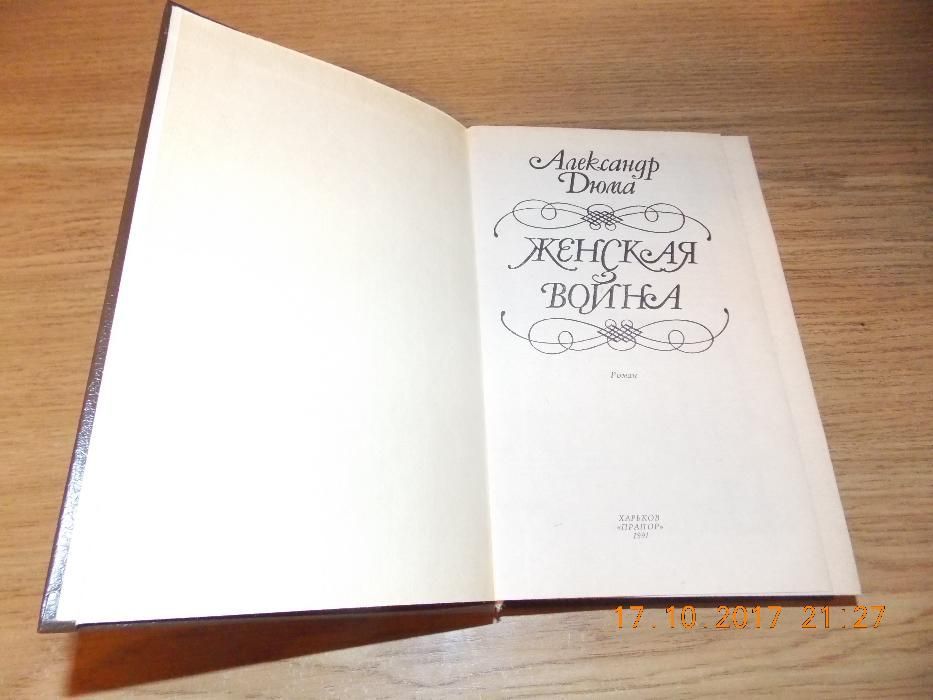 Александр
Дюма
ЖЕНСКАЯ
ВОЙНА
Роман
ХАРЬКОВ
«ПРАПОР»
1991
17.10.2017 21:27